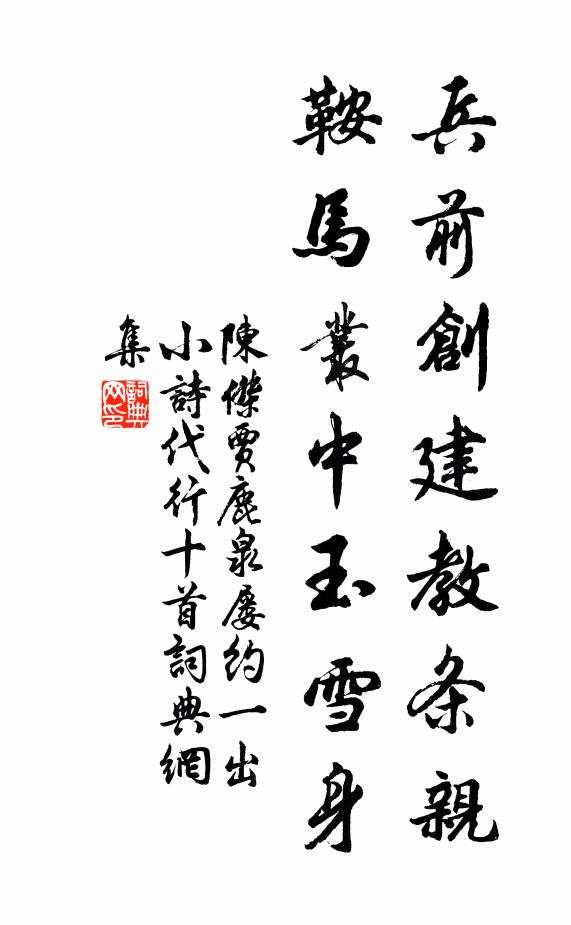 兵前創建教条親
鞍馬叢中玉雪身
陳傑賈鹿泉屡約一出
小詩代行十首詞典網
集
詞典
网印